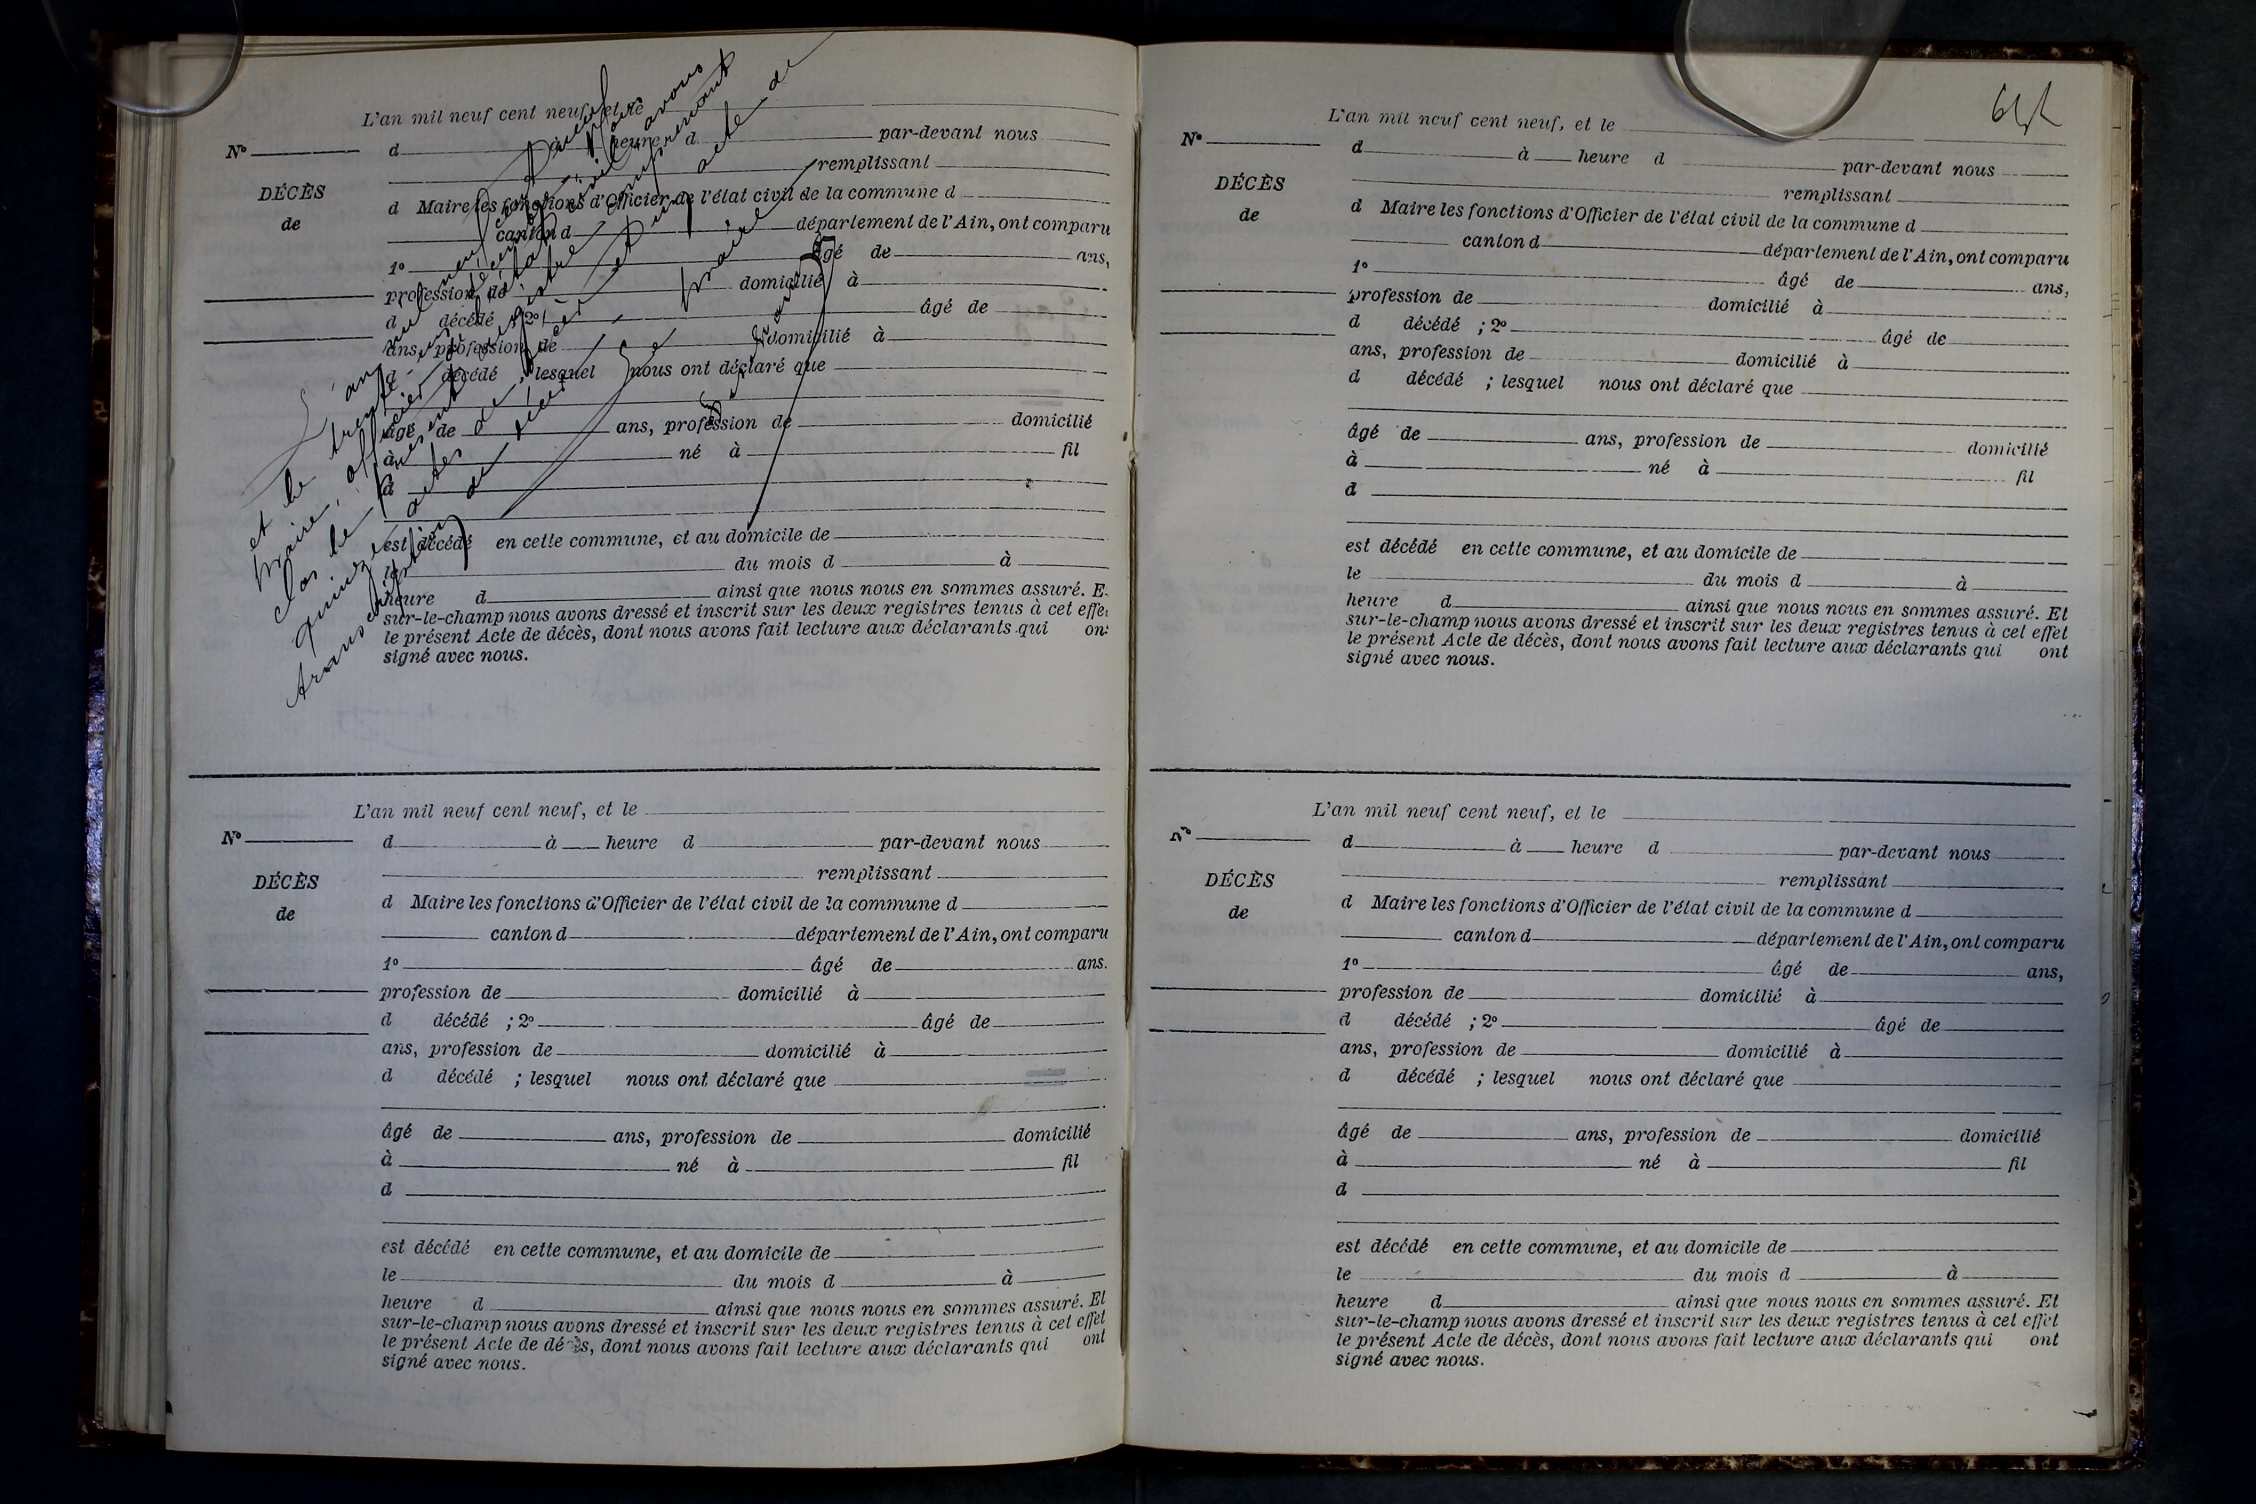 L'an mil neuf cent neuf, et le
N° d à heure d par-devant nous
remplissant
DÉCÈS
de
d Maire les fonctions d'Officier de l'état civil de la commune d
canton d département de l'Ain, ont comparu
1° âgé de ans,
profession de domicilié à
d décédé ; 2° âgé de
ans, profession de domicilié à
d décédé ; lesquel nous ont déclaré que
âgé de ans, profession de domicilié
à né à fil
d
est décédé en cette commune, et au domicile de
le du mois d à
heure d ainsi que nous nous en sommes assuré. E
sur-le-champ nous avons dressé et inscrit sur les deux registres tenus à cet effe
le présent Acte de décès, dont nous avons fait lecture aux déclarants qui on
signé avec nous.
L'an mil neuf cent neuf
et le trente-un décembre Nous
maire, officier de l'état civil avons
clos le présent registre comprenant
quinze actes de décès et un acte de
transcription de décès
Le maire
L'an mil neuf cent neuf, et le
N° d à heure d par-devant nous
remplissant
DÉCÈS
de
d Maire les fonctions d'Officier de l'état civil de la commune d
canton d département de l'Ain, ont comparu
1° âgé de ans.
profession de domicilié à
d décédé ; 2° âgé de
ans, profession de domicilié à
d décédé ; lesquel nous ont déclaré que
âgé de ans, profession de domicilié
à né à fil
d
est décédé en cette commune, et au domicile de
le du mois d à
heure d ainsi que nous nous en sommes assuré. Et
sur-le-champ nous avons dressé et inscrit sur les deux registres tenus à cet effet
le présent Acte de décès, dont nous avons fait lecture aux déclarants qui ont
signé avec nous.
L'an mil neuf cent neuf, et le
N° d à heure d par-devant nous
remplissant
DÉCÈS
de
d Maire les fonctions d'Officier de l'état civil de la commune d
canton d département de l'Ain, ont comparu
1° âgé de ans,
profession de domicilié à
d décédé ; 2° âgé de
ans, profession de domicilié à
d décédé ; lesquel nous ont déclaré que
âgé de ans, profession de domicilié
à né à fil
d
est décédé en cette commune, et au domicile de
le du mois d à
heure d ainsi que nous nous en sommes assuré. Et
sur-le-champ nous avons dressé et inscrit sur les deux registres tenus à cet effet
le présent Acte de décès, dont nous avons fait lecture aux déclarants qui ont
signé avec nous.
L'an mil neuf cent neuf, et le
N° d à heure d par-devant nous
remplissant
DÉCÈS
de
d Maire les fonctions d'Officier de l'état civil de la commune d
canton d département de l'Ain, ont comparu
1° âgé de ans,
profession de domicilié à
d décédé ; 2° âgé de
ans, profession de domicilié à
d décédé ; lesquel nous ont déclaré que
âgé de ans, profession de domicilié
à né à fil
d
est décédé en cette commune, et au domicile de
le du mois d à
heure d ainsi que nous nous en sommes assuré. Et
sur-le-champ nous avons dressé et inscrit sur les deux registres tenus à cet effet
le présent Acte de décès, dont nous avons fait lecture aux déclarants qui ont
signé avec nous.